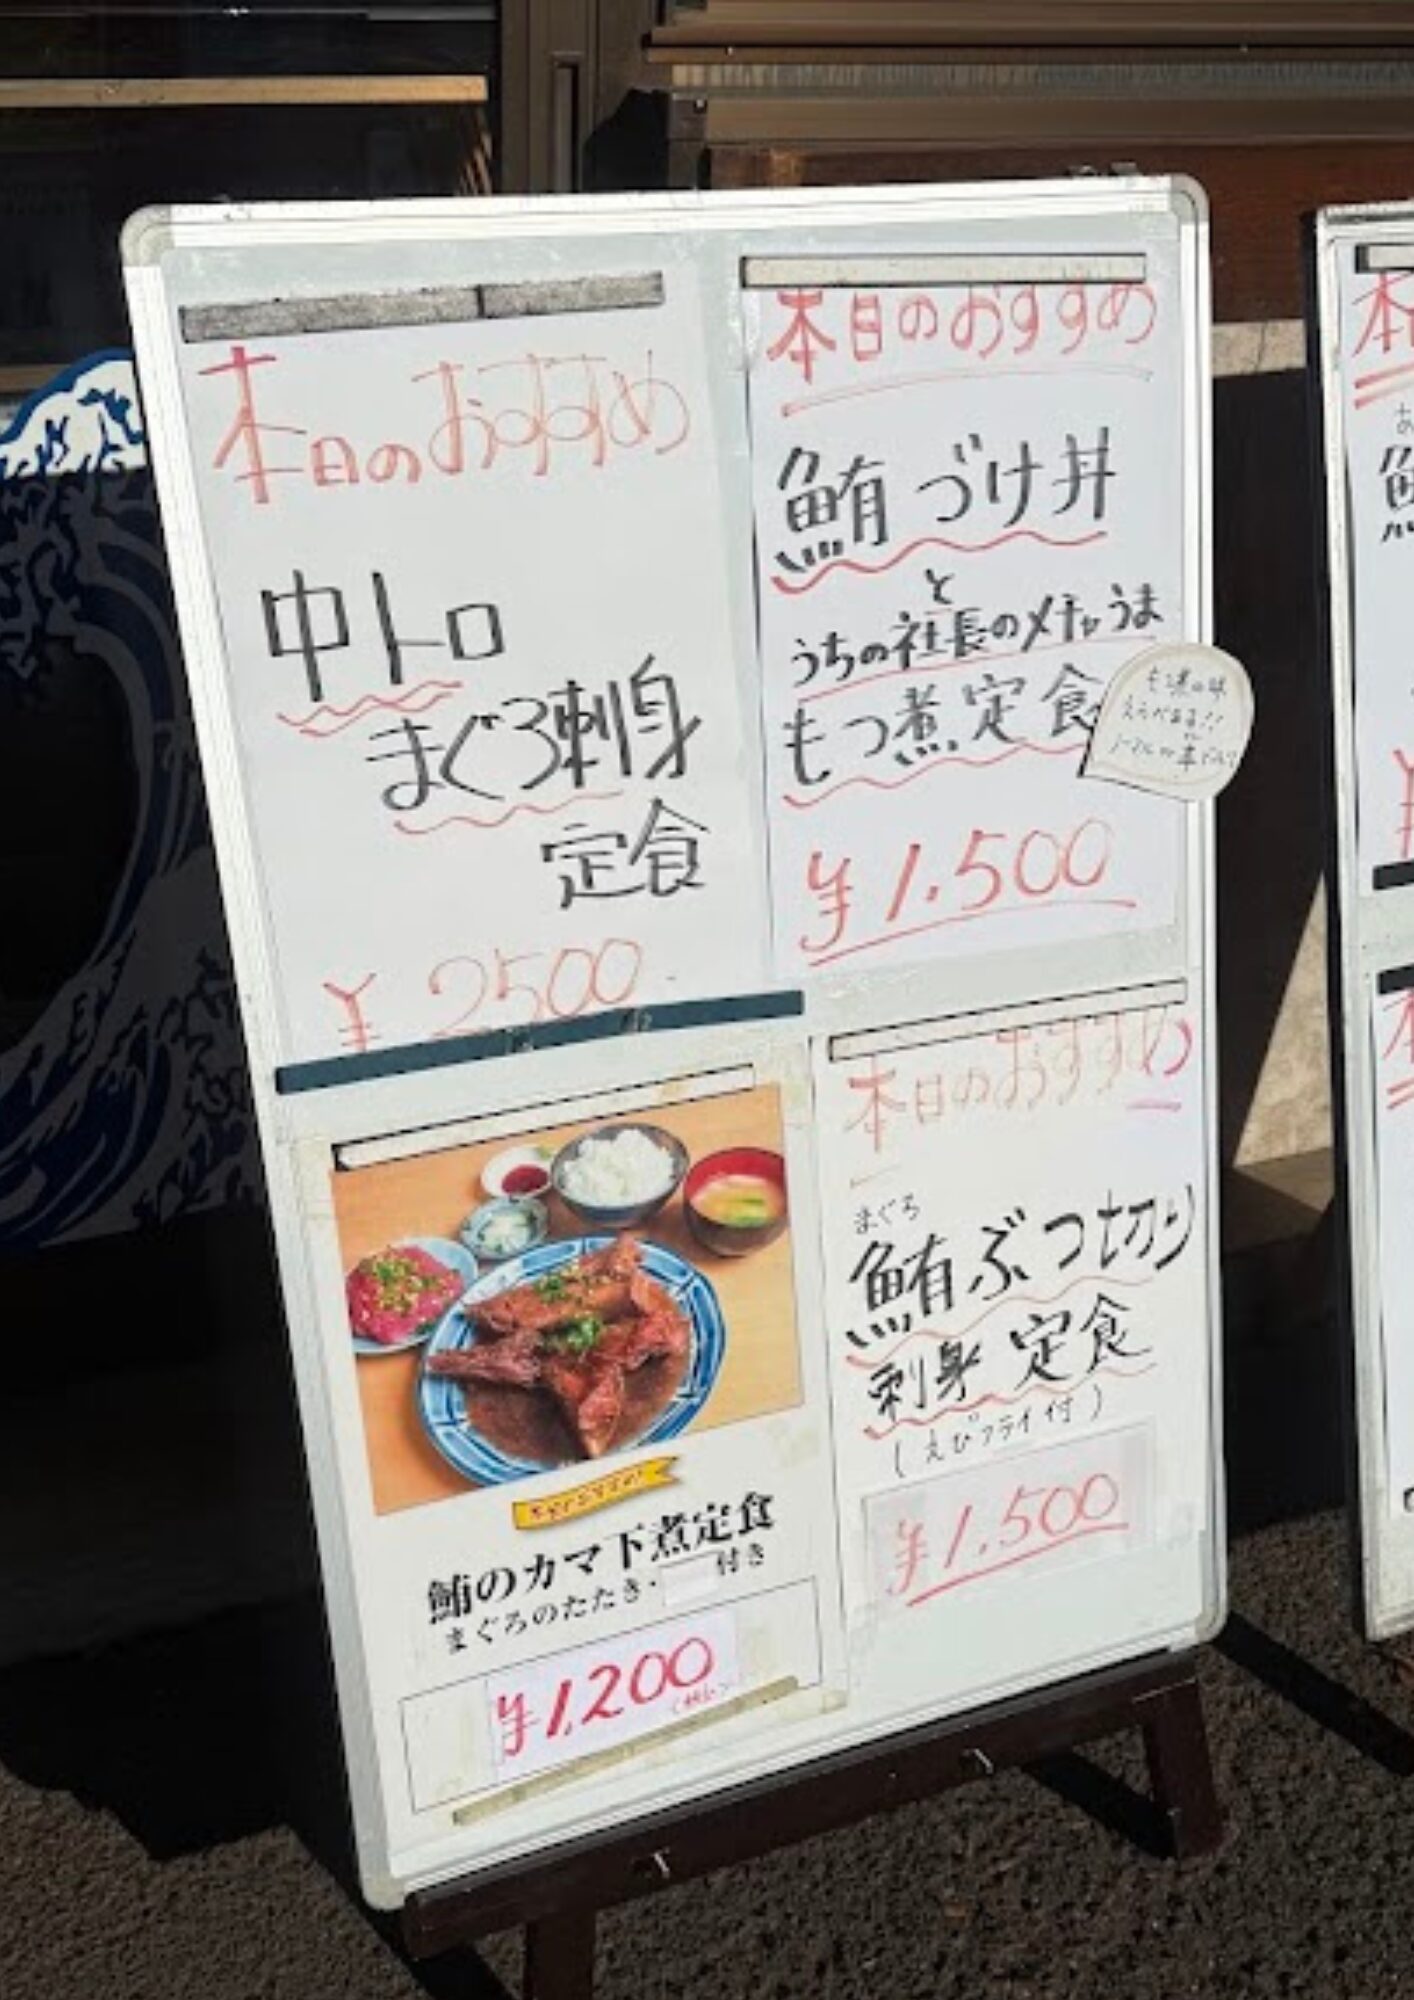 本日のおすすめ
中トロ
まぐろ刺身
定食
¥2500
本日のおすすめ
鮪づけ丼
と
うちの社長のメチャうま
もつ煮定食
もつ煮の味
えらべます!!
¥1,500
鮪のカマ下煮定食
まぐろのたたき・付き
¥1,200
本日のおすすめ
まぐろ
鮪ぶつ切り
刺身定食
(えびフライ付)
¥1,500